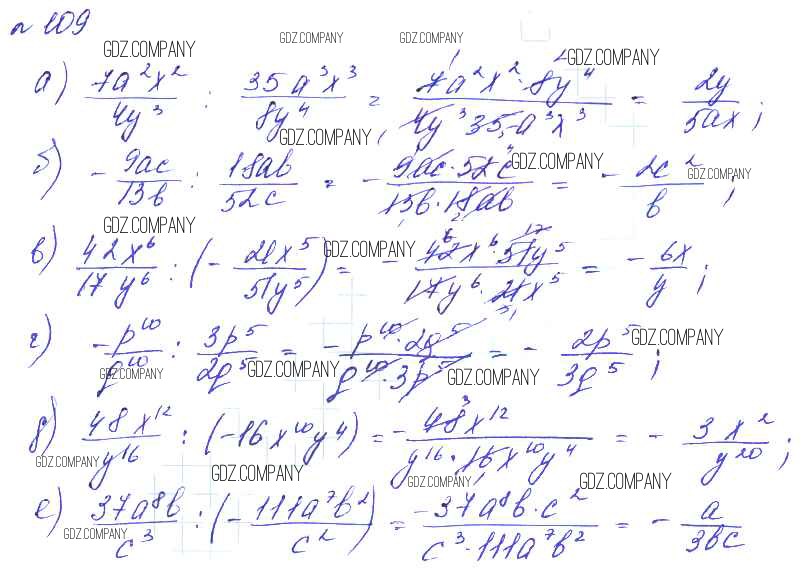 № 109
GDZ.COMPANY GDZ.COMPANY GDZ.COMPANY GDZ.COMPANY
а) 7a²x²/4y³ : 35a³x³/8y⁴ = 7a²x²·8y⁴/4y³35a³x³ = 2y/5ax ;
GDZ.COMPANY GDZ.COMPANY
б) -9ac/13b : 18ab/52c = -9ac·52c/13b·18ab = -2c²/b ;
GDZ.COMPANY GDZ.COMPANY
в) 42x⁶/17y⁶ : (-21x⁵/51y⁵) = -42x⁶·51y⁵/17y⁶·21x⁵ = -6x/y ;
GDZ.COMPANY GDZ.COMPANY
г) -p¹⁰/q¹⁰ : 3p⁵/2q⁵ = -p¹⁰·2q⁵/q¹⁰·3p⁵ = -2p⁵/3q⁵ ;
GDZ.COMPANY GDZ.COMPANY GDZ.COMPANY
д) 48x¹²/y¹⁶ : (-16x¹⁰y4) = -48x¹²/y¹⁶·16x¹⁰y⁴ = -3x²/y²⁰ ;
GDZ.COMPANY GDZ.COMPANY GDZ.COMPANY GDZ.COMPANY
е) 37a⁸b/c³ : (-111a⁷b²/c²) = -37a⁸b·c²/c³·111a⁷b² = -a/3bc
GDZ.COMPANY